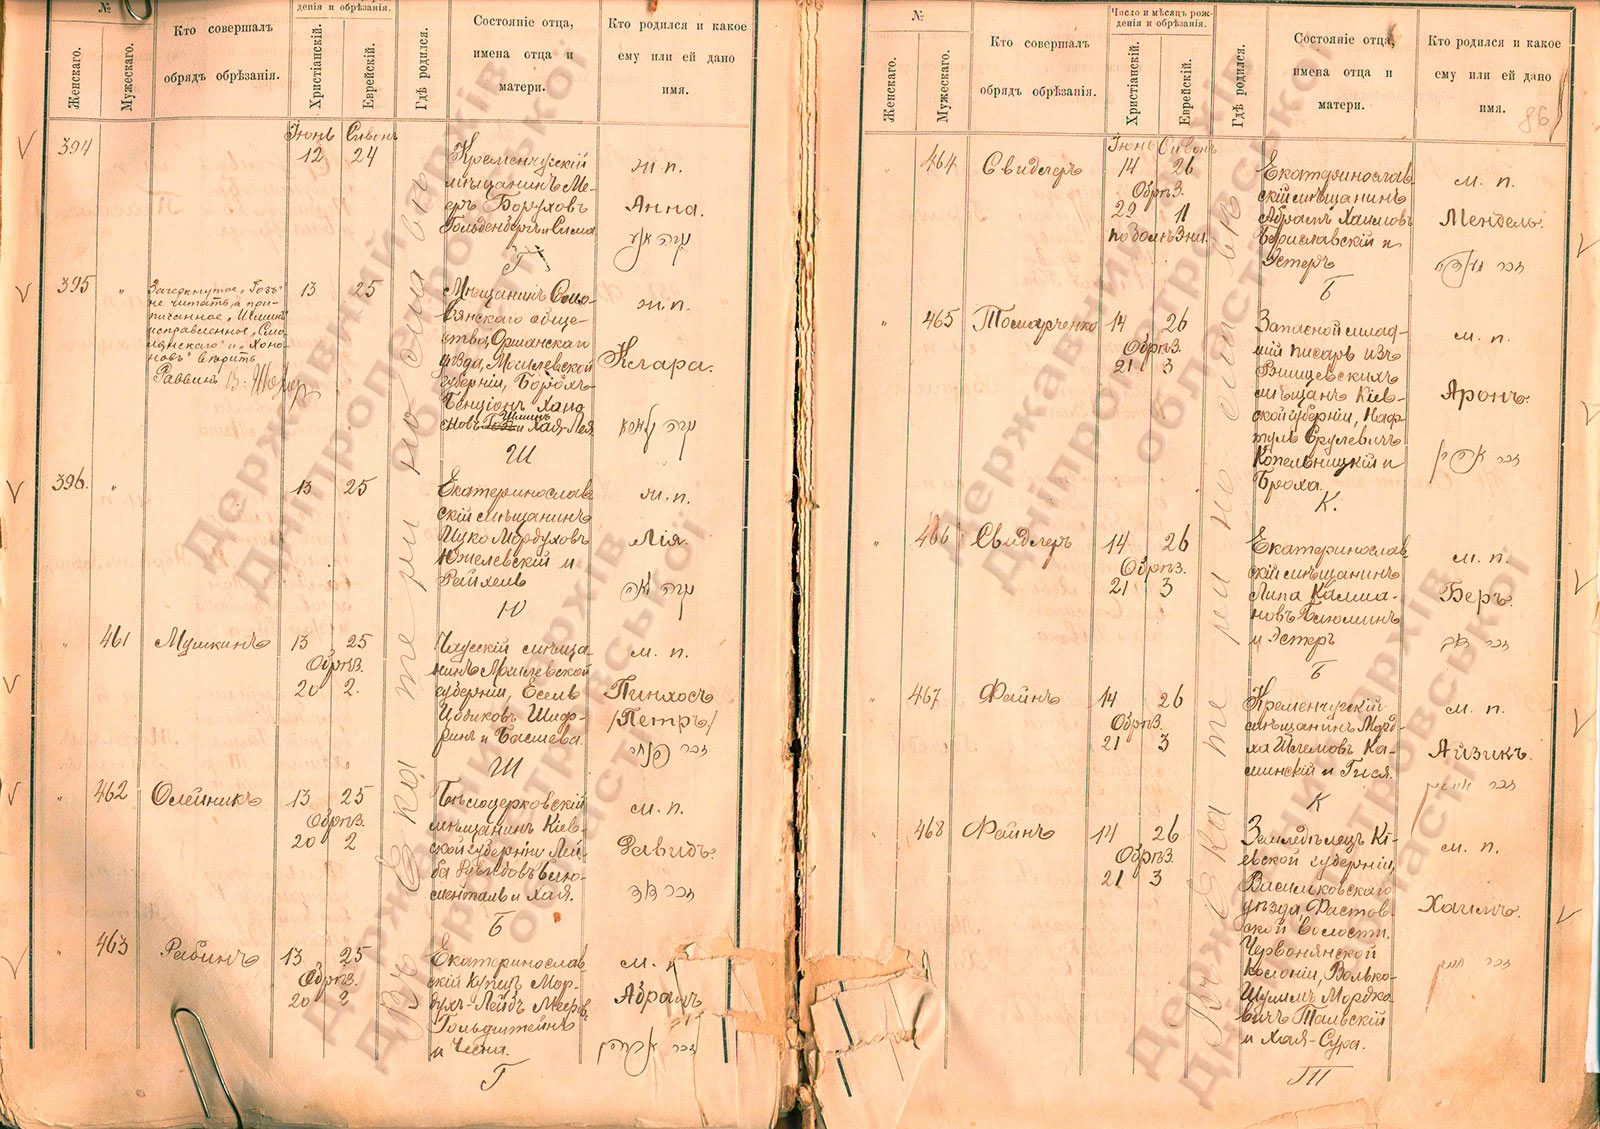 №
Женскаго.
Мужескаго.
Кто совершалъ
обрядъ обрѣзанія.
дения и обрѣзанія.
Христіанскій.
Еврейскій.
Гдѣ родился.
Состояніе отца,
имена отца и
матери.
Кто родился и какое
ему или ей дано
имя.
Іюнь Сивонъ
394
12 24
Кременчугскій
мѣщанинъ Ме-
еръ Боруховъ
Гольденбергъ и Сима
Г
ж. п.
Анна.
395 "
Зачеркнутое „Гозъ"
не читать, а при-
писанное „Шлминъ
исправленное
вѣрить
Раввинъ
13 25
Мѣщанинъ
общe-
ства, Оршанскаго
уѣзда, Могилевской
губерніи,
Бенціонъ Хано
новъ Шлминъ и Хая-Лея
Ш
ж. п.
Клара.
396. "
13 25
Екатеринослав
скій мѣщанинъ
Ицко Мордуховъ
Южелевскій и
Рейхель
Ю
ж. п.
Лія.
" 461
Мушкинъ
13 25
Обрѣз.
20 2.
Чаусскій мѣща-
нинъ Могилевской
губерніи, Есель
Шиф-
ринъ и Басшева.
Ш
м. п.
Пинхосъ
/Петръ/
" 462
Олейникъ
13 25
Обрѣз.
20 2
Бѣлоцерковскій
мѣщанинъ Кіев-
ской губерніи Лей-
ба Блю-
менталь и Хая.
Б
м. п.
Давидъ.
" 463
Рабинъ
13 25
Обрѣз.
20 2
Екатеринослав
скій купецъ Мор-
духъ-Лейбъ Мееровъ
Гольдштейнъ
и Чесня.
Г
м.
Абрамъ
Въ Екатеринославѣ
№
Женскаго.
Мужескаго.
Кто совершалъ
обрядъ обрѣзанія.
Число и мѣсяцъ рож-
денія и обрѣзанія.
Христіанскій.
Еврейскій.
Гдѣ родился.
Состояніе отца,
имена отца и
матери.
Кто родился и какое
ему или ей дано
имя.
86
Іюнь Сивонъ
464
Свидлеръ
14 26
Обрѣз.
29 11
по болѣзни.
Екатеринослав
скій мѣщанинъ
Абрамъ Хаимовъ
Бериславскій и
Эстеръ
Б
м. п.
Мендель.
זכר
" 465
14 26
Обрѣз.
21 3
Запасной млад-
шій писарь изъ
мѣщанъ Кіев-
ской губерніи, Наф-
тулъ Срулевичъ
Копельницкій и
Броха.
К.
м. п.
Аронъ.
זכר
" 466
Свидлеръ
14 26
Обрѣз.
21 3
Екатеринослав
скій мѣщанинъ
Липа Калма-
новъ Блюминъ
и Эстеръ
Б
м. п.
Беръ.
זכר
" 467
Файнъ
14 26
Обрѣз.
21 3
Кременчугскій
мѣщанинъ Морд-
ха Ка-
минскій и Гися.
К
м. п.
Айзикъ.
זכר
" 468
Файнъ
14 26
Обрѣз.
21 3
Земледѣлецъ Кі-
евской губерніи,
Васильковскаго
уѣзда, Фастов-
ской волости.
Червонянской
колоніи, Волько-
Шулимъ Мордко-
вичъ Таевскій
и Хая-Сура.
Т
м. п.
Хаимъ.
זכר
Въ Екатеринославѣ
Державний архів
Дніпропетровської
області